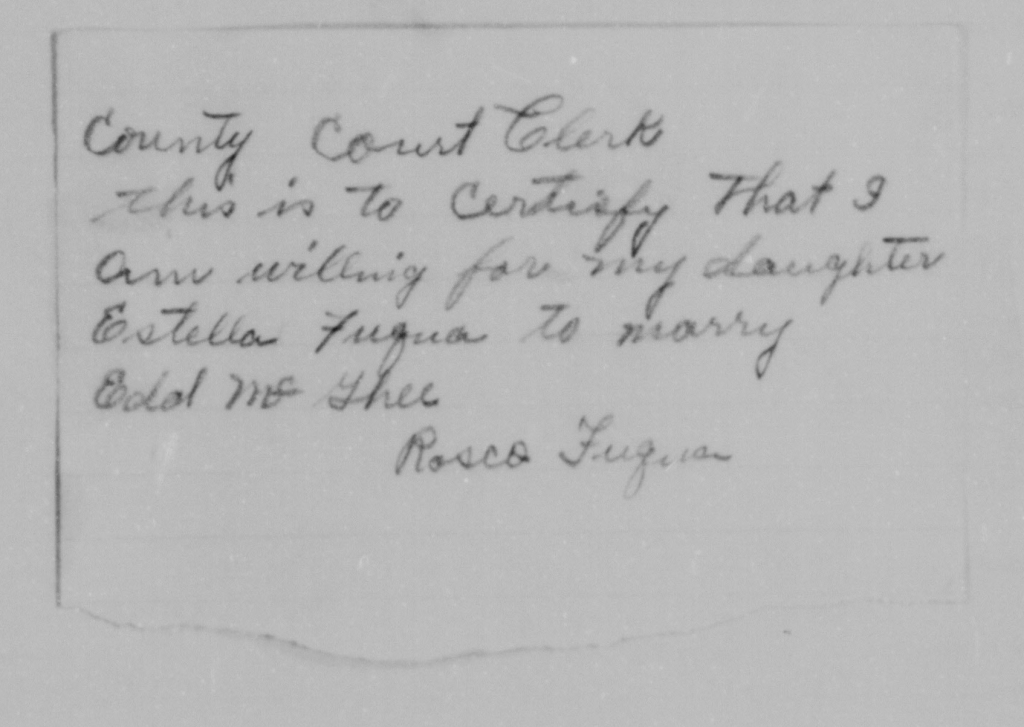 County Court Clerk
this is to Certisfy That I
Am willing for my daughter
Estella Fuqua to marry
Edd Mc Ghee
Rosco Fuqua